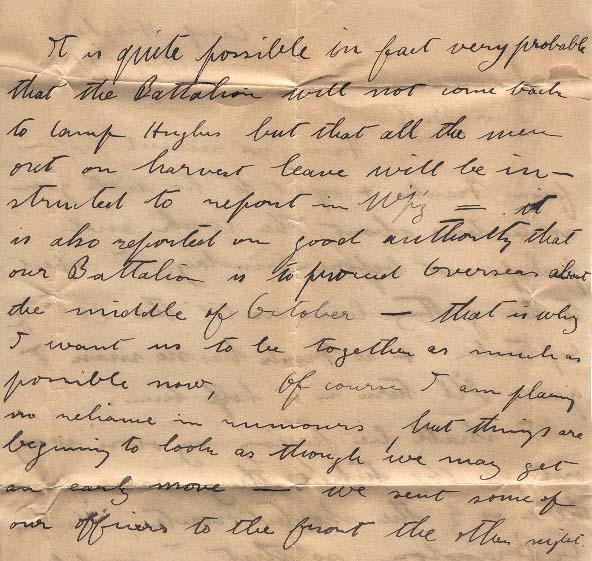 It is quite possible in fact very probable
that the Battalion will not come back
to Camp Hughes but that all the men
out on harvest leave will be in-
structed to report in Wp'g = it
is also reported on good authority that
our Battalion is to proceed Overseas about
the middle of October — that is why
I want us to be together as much as
possible now, Of course I am placing
no reliance in rumours, but things are
beginning to look as though we may get
an early move — we sent some of
our officers to the front the other night.